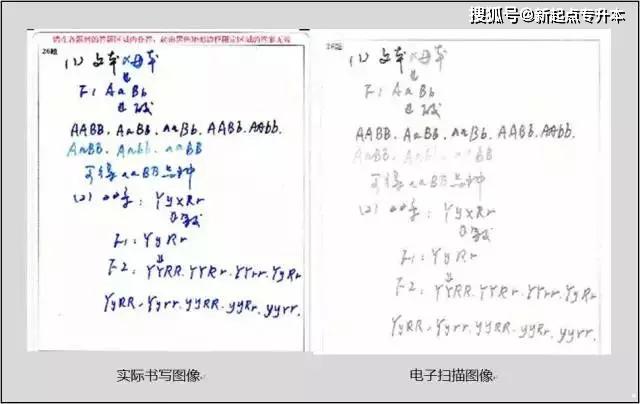 搜狐号@新起点专升本
请在各题目的答题区域内作答，超出黑色矩形边框限定区域的答案无效
26题
(1) 父本×母本
F1 AaBb
AABB、AaBb、aaBb、AABb、AAbb、
AaBB、Aabb、aaBB
可得aaBB品种
(2) YyxRr
F1: YyRr
F2: YYRR、YYRr、YYrr、YyRr
YyRR、Yyrr、yyRR、yyRr、yyrr.
26题
(1) 父本×母本
F1 AaBb
AABB、AaBb、aaBb、AABb、AAbb、
AaBB、Aabb、aaBB
可得aaBB品种
(2) YyxRr
F1: YyRr
F2: YYRR、YYRr、YYrr、YyRr
YyRR、Yyrr、yyRR、yyRr、yyrr.
实际书写图像
电子扫描图像